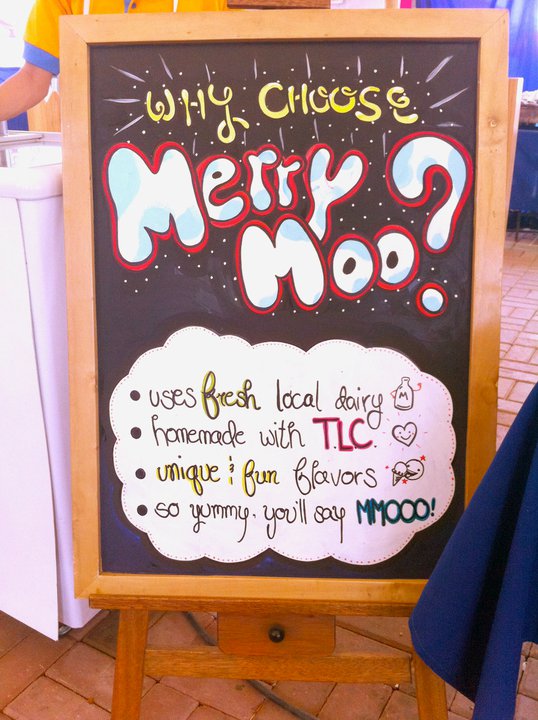 WHY CHOOSE
Merry
Moo?
• uses fresh local dairy
M
• homemade with T.L.C.
• unique & fun flavors
• so yummy. you'll say MMOOO!